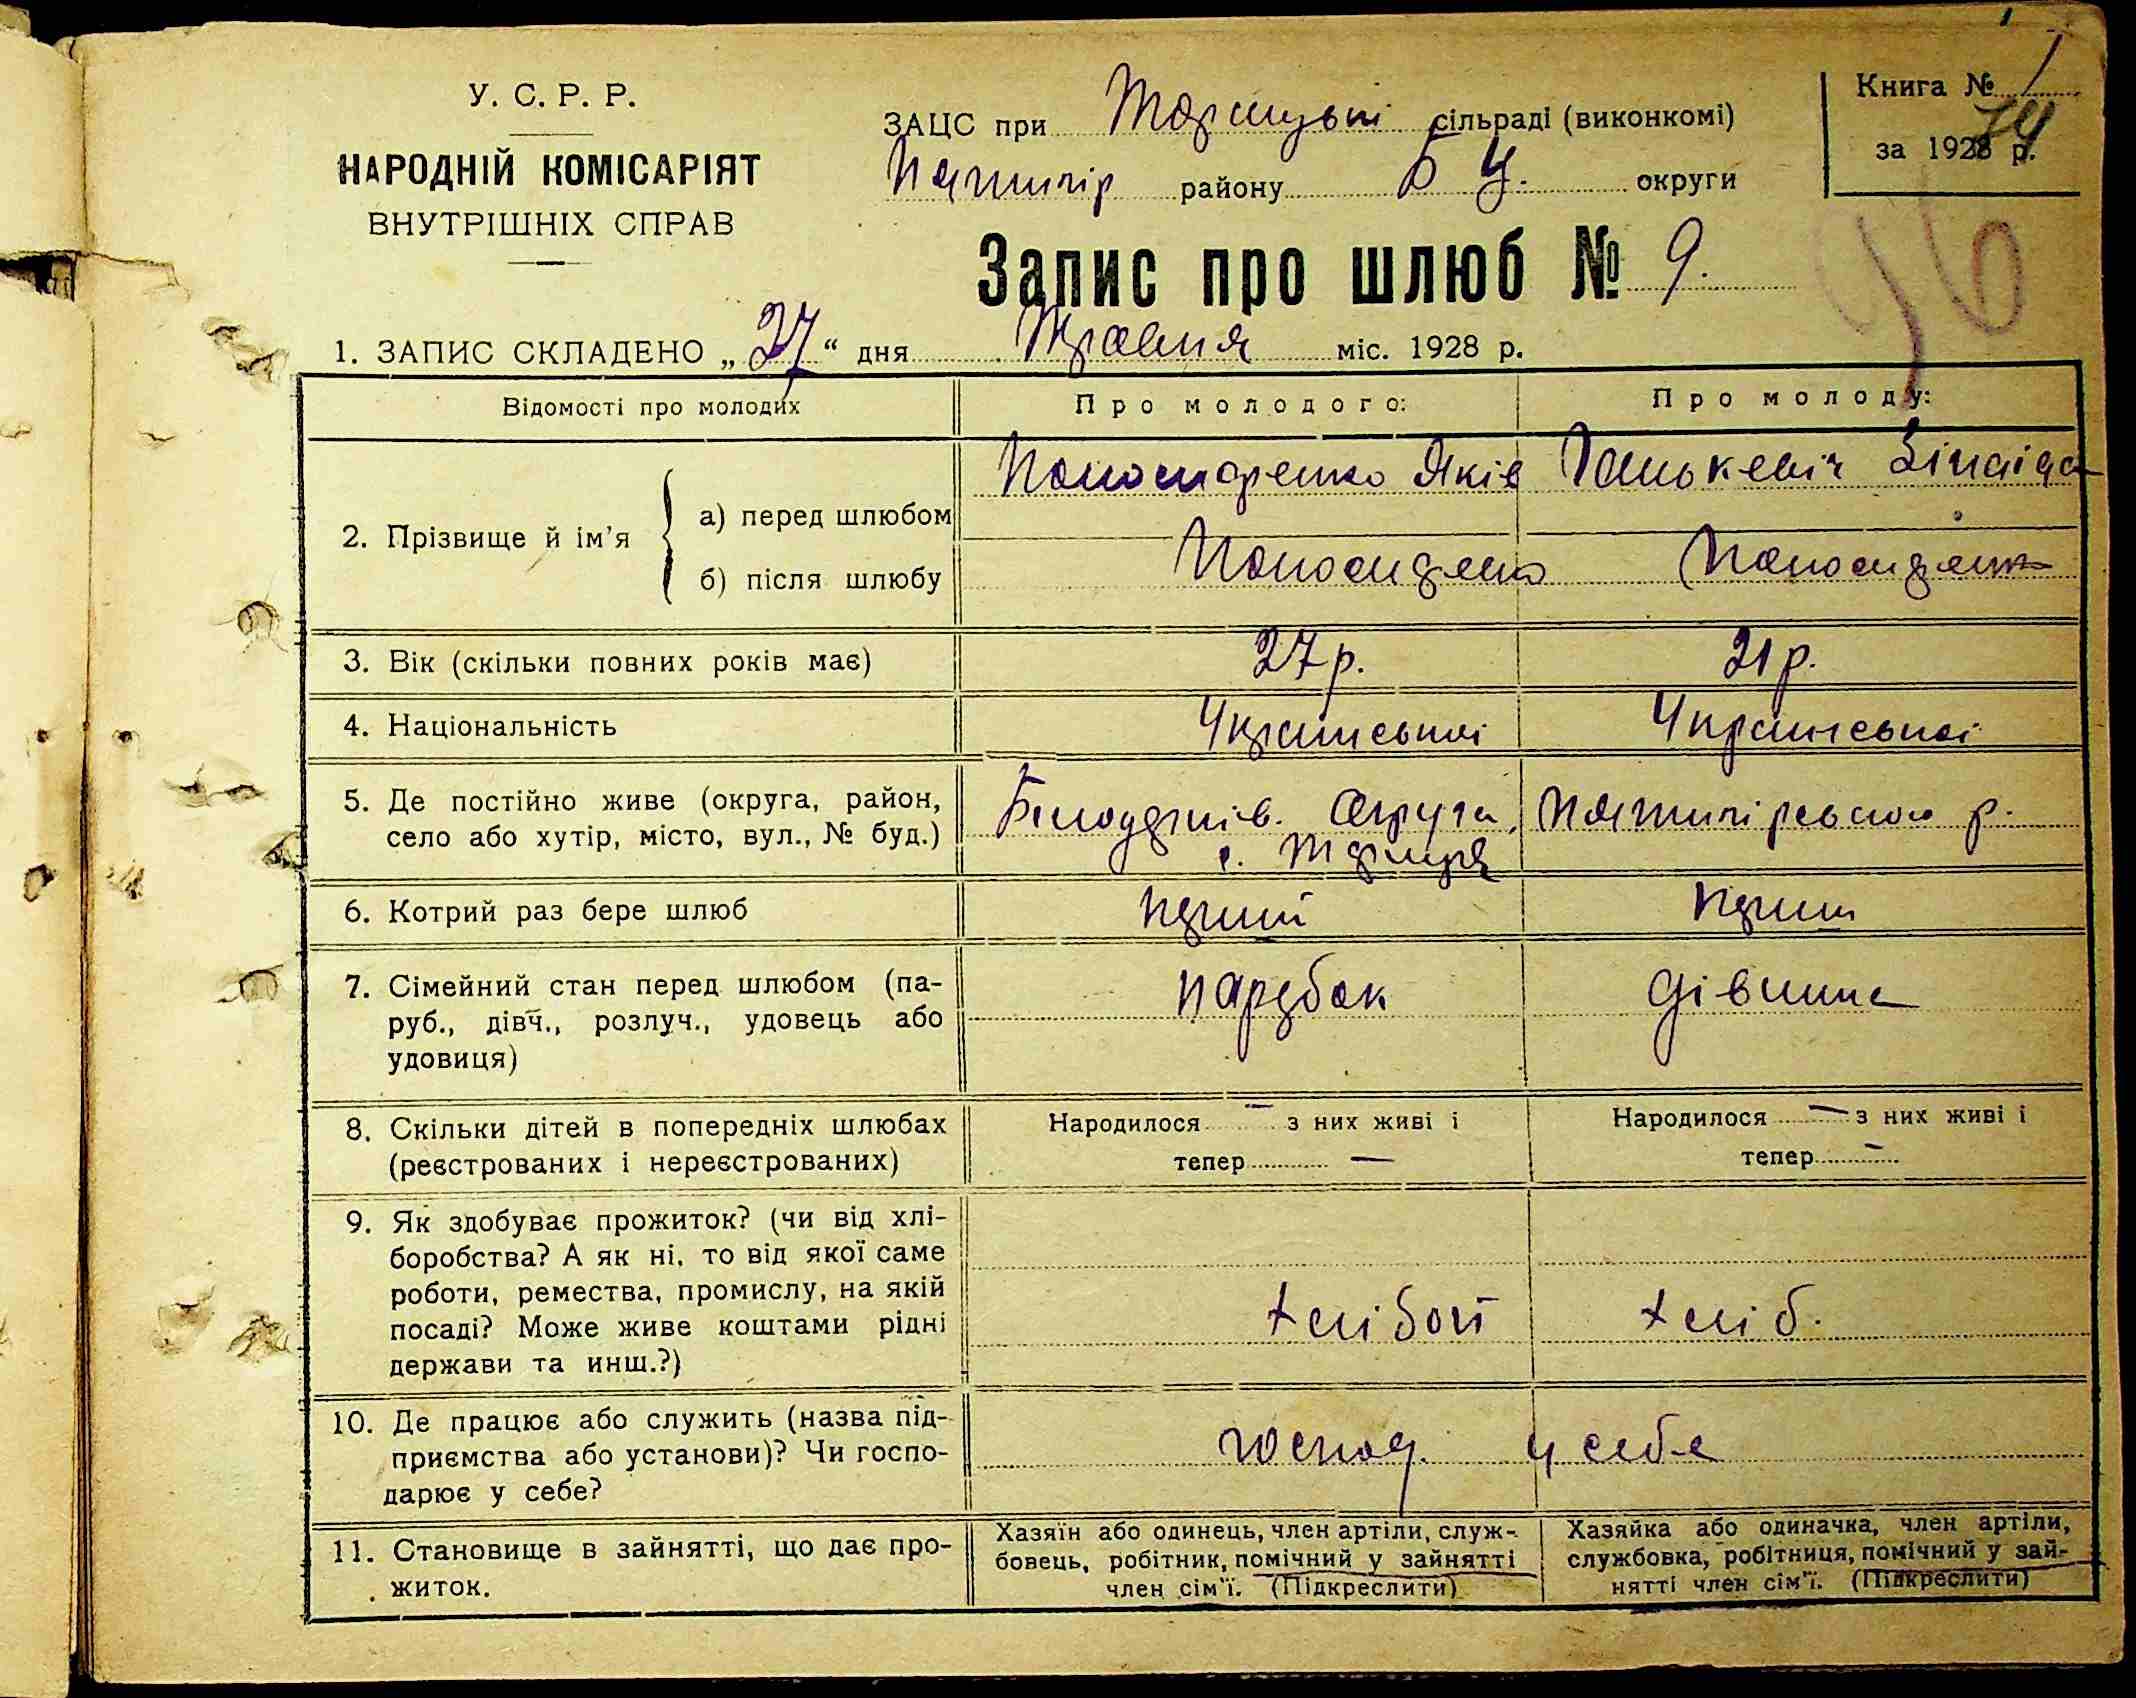 У. С. Р. Р.
НАРОДНІЙ КОМІСАРІЯТ
ВНУТРІШНІХ СПРАВ
ЗАЦС при сільраді (виконкомі)
Пятигір району Б Ц. округи
Книга № 1
за 1928 р.
74
96
Запис про шлюб № 9.
1. ЗАПИС СКЛАДЕНО „27“ дня Травня міс. 1928 р.
Відомості про молодих
Про молодого:
Про молоду:
2. Прізвище й ім'я
а) перед шлюбом
Яків
Зінаіда
б) після шлюбу
3. Вік (скільки повних років має)
27 р.
21 р.
4. Національність
Української
Української
5. Де постійно живе (округа, район,
село або хутір, місто, вул., № буд.)
Білоцерків. Округа, Пятигірського р.
с. Териця
6. Котрий раз бере шлюб
7. Сімейний стан перед шлюбом (па-
руб., дівч., розлуч., удовець або
удовиця)
парубок
дівчина
8. Скільки дітей в попередніх шлюбах
(реєстрованих і нереєстрованих)
Народилося — з них живі і
тепер —
Народилося — з них живі і
тепер —
9. Як здобуває прожиток? (чи від хлі-
боробства? А як ні, то від якої саме
роботи, ремества, промислу, на якій
посаді? Може живе коштами рідні
держави та инш.?)
хліб.
10. Де працює або служить (назва під-
приємства або установи)? Чи госпо-
дарює у себе?
господ. у себе
11. Становище в зайнятті, що дає про-
житок.
Хазяїн або одинець, член артіли, служ-
бовець, робітник, помічний у зайнятті
член сім'ї. (Підкреслити)
Хазяйка або одиначка, член артіли,
службовка, робітниця, помічний у зай-
нятті член сім'ї. (Підкреслити)